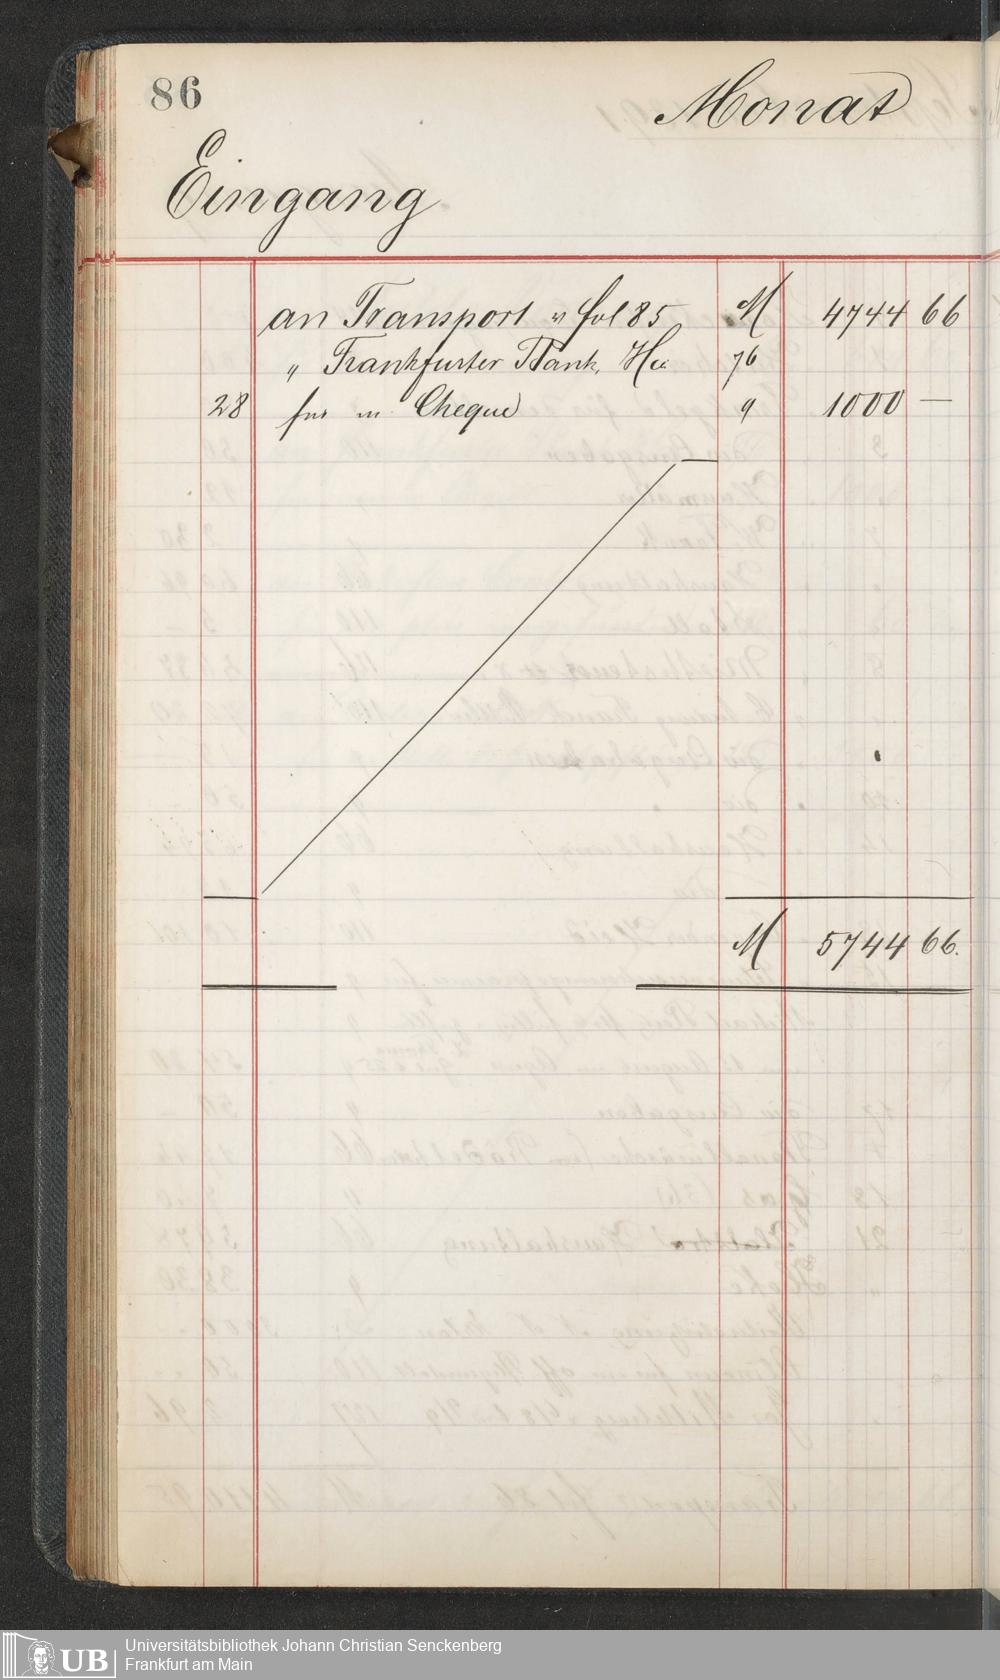 86
Monat
Eingang
an Transport v fol 85 M 4744 66
" Frankfurter Bank, 76
28 für m Cheque 9 1000 —
M 5744 66.
Universitätsbibliothek Johann Christian Senckenberg
UB Frankfurt am Main